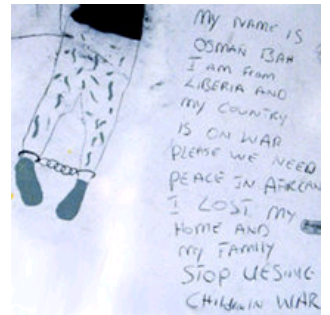 MY NAME IS
OSMAN BAH
I AM FROM
LIBERIA AND
MY COUNTRY
IS ON WAR
PLEASE WE NEED
PEACE IN AFRICAN
I LOST MY
HOME AND
MY FAMILY
STOP UESING
CHILDREIN WAR